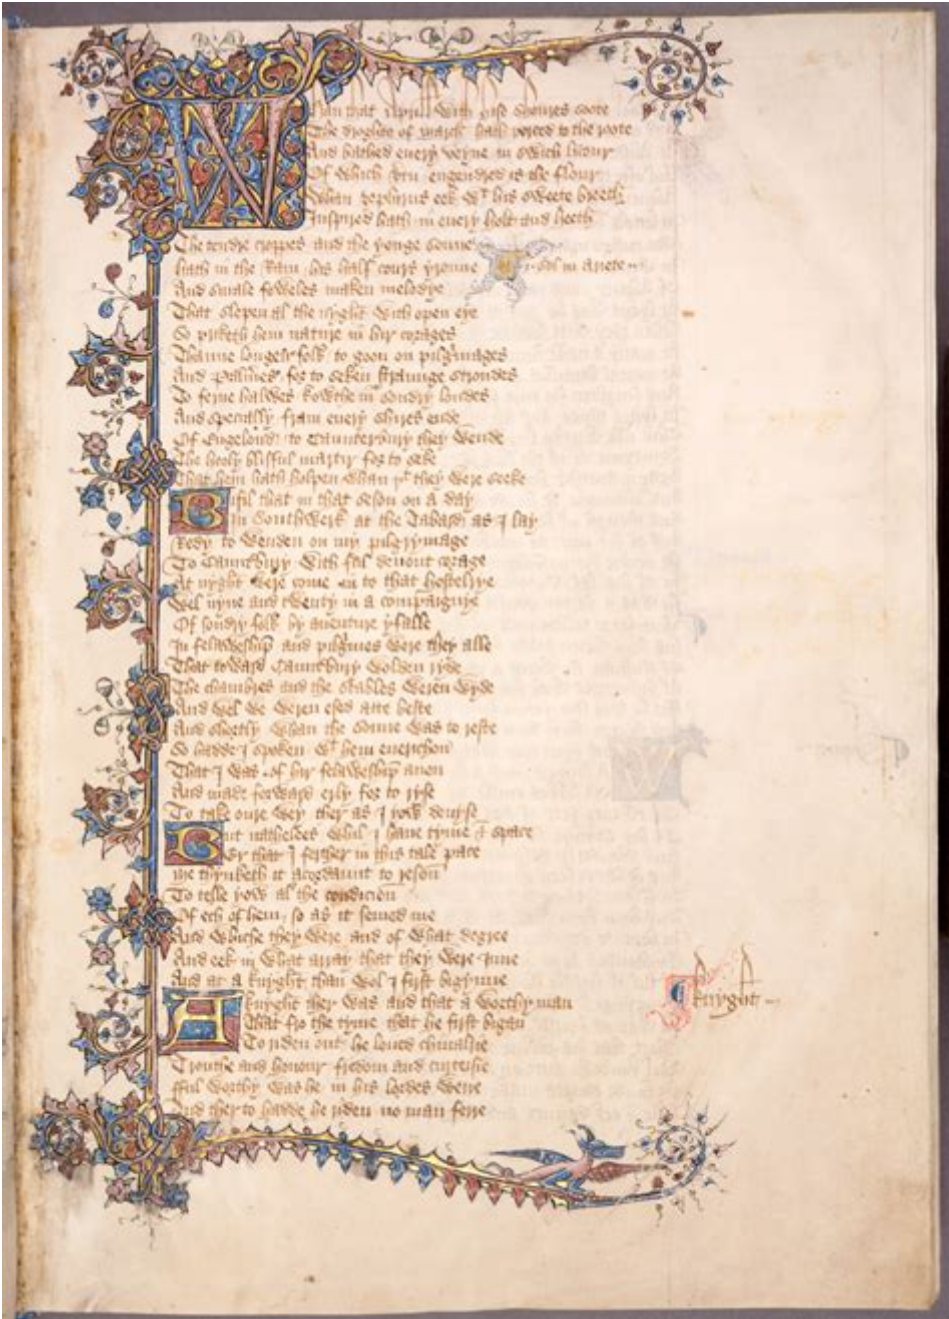 Whan that Aprill with his shoures soote
The droghte of March hath perced to the roote
And bathed every veyne in swich licour
Of which vertu engendred is the flour
Whan zephirus eek wt his sweete breeth
Inspired hath in every holt and heeth
The tendre croppes and the yonge sonne
hath in the Ram his half cours yronne i. sol in ariete
And smale foweles maken melodye
That slepen al the nyght with open eye
So priketh hem nature in hir corages
Thanne longen folk to goon on pilgrimages
And Palmeres for to seken straunge strondes
To ferne halwes kowthe in sondry londes
And specially fram every shires ende
Of Engelond to Caunterbury they wende
The hooly blisful martir for to seke
That hem hath holpen whan þt they were seeke
Bifil that in that seson on a day
In Southwerk at the Tabard as I lay
Redy to wenden on my pilgrymage
To Caunterbury with ful devout corage
At nyght were come in to that hostelrye
Wel nyne and twenty in a compaignye
Of sondry folk by aventure yfalle
In felaweshipe and pilgrimes were they alle
That toward Caunterbury wolden ryde
The chambres and the stables weren wyde
And wel we weren esed atte beste
And shortly whan the sonne was to reste
So hadde I spoken wt hem everichon
That I was of hir felaweshipe anon
And made forward erly for to ryse
To take oure wey ther as I yow devyse
But nathelees whil I have tyme & space
Er that I ferther in this tale pace
Me thynketh it acordaunt to reson
To telle yow al the condicion
Of ech of hem so as it semed me
And whiche they were and of what degree
And eek in what array that they were inne
And at a knyght than wol I first bigynne
A knyght ther was and that a worthy man
That fro the tyme that he first bigan
To riden out he loved chivalrie
Trouthe and honour fredom and curteisie
fful worthy was he in his lordes werre
And therto hadde he riden no man ferre
Knyght